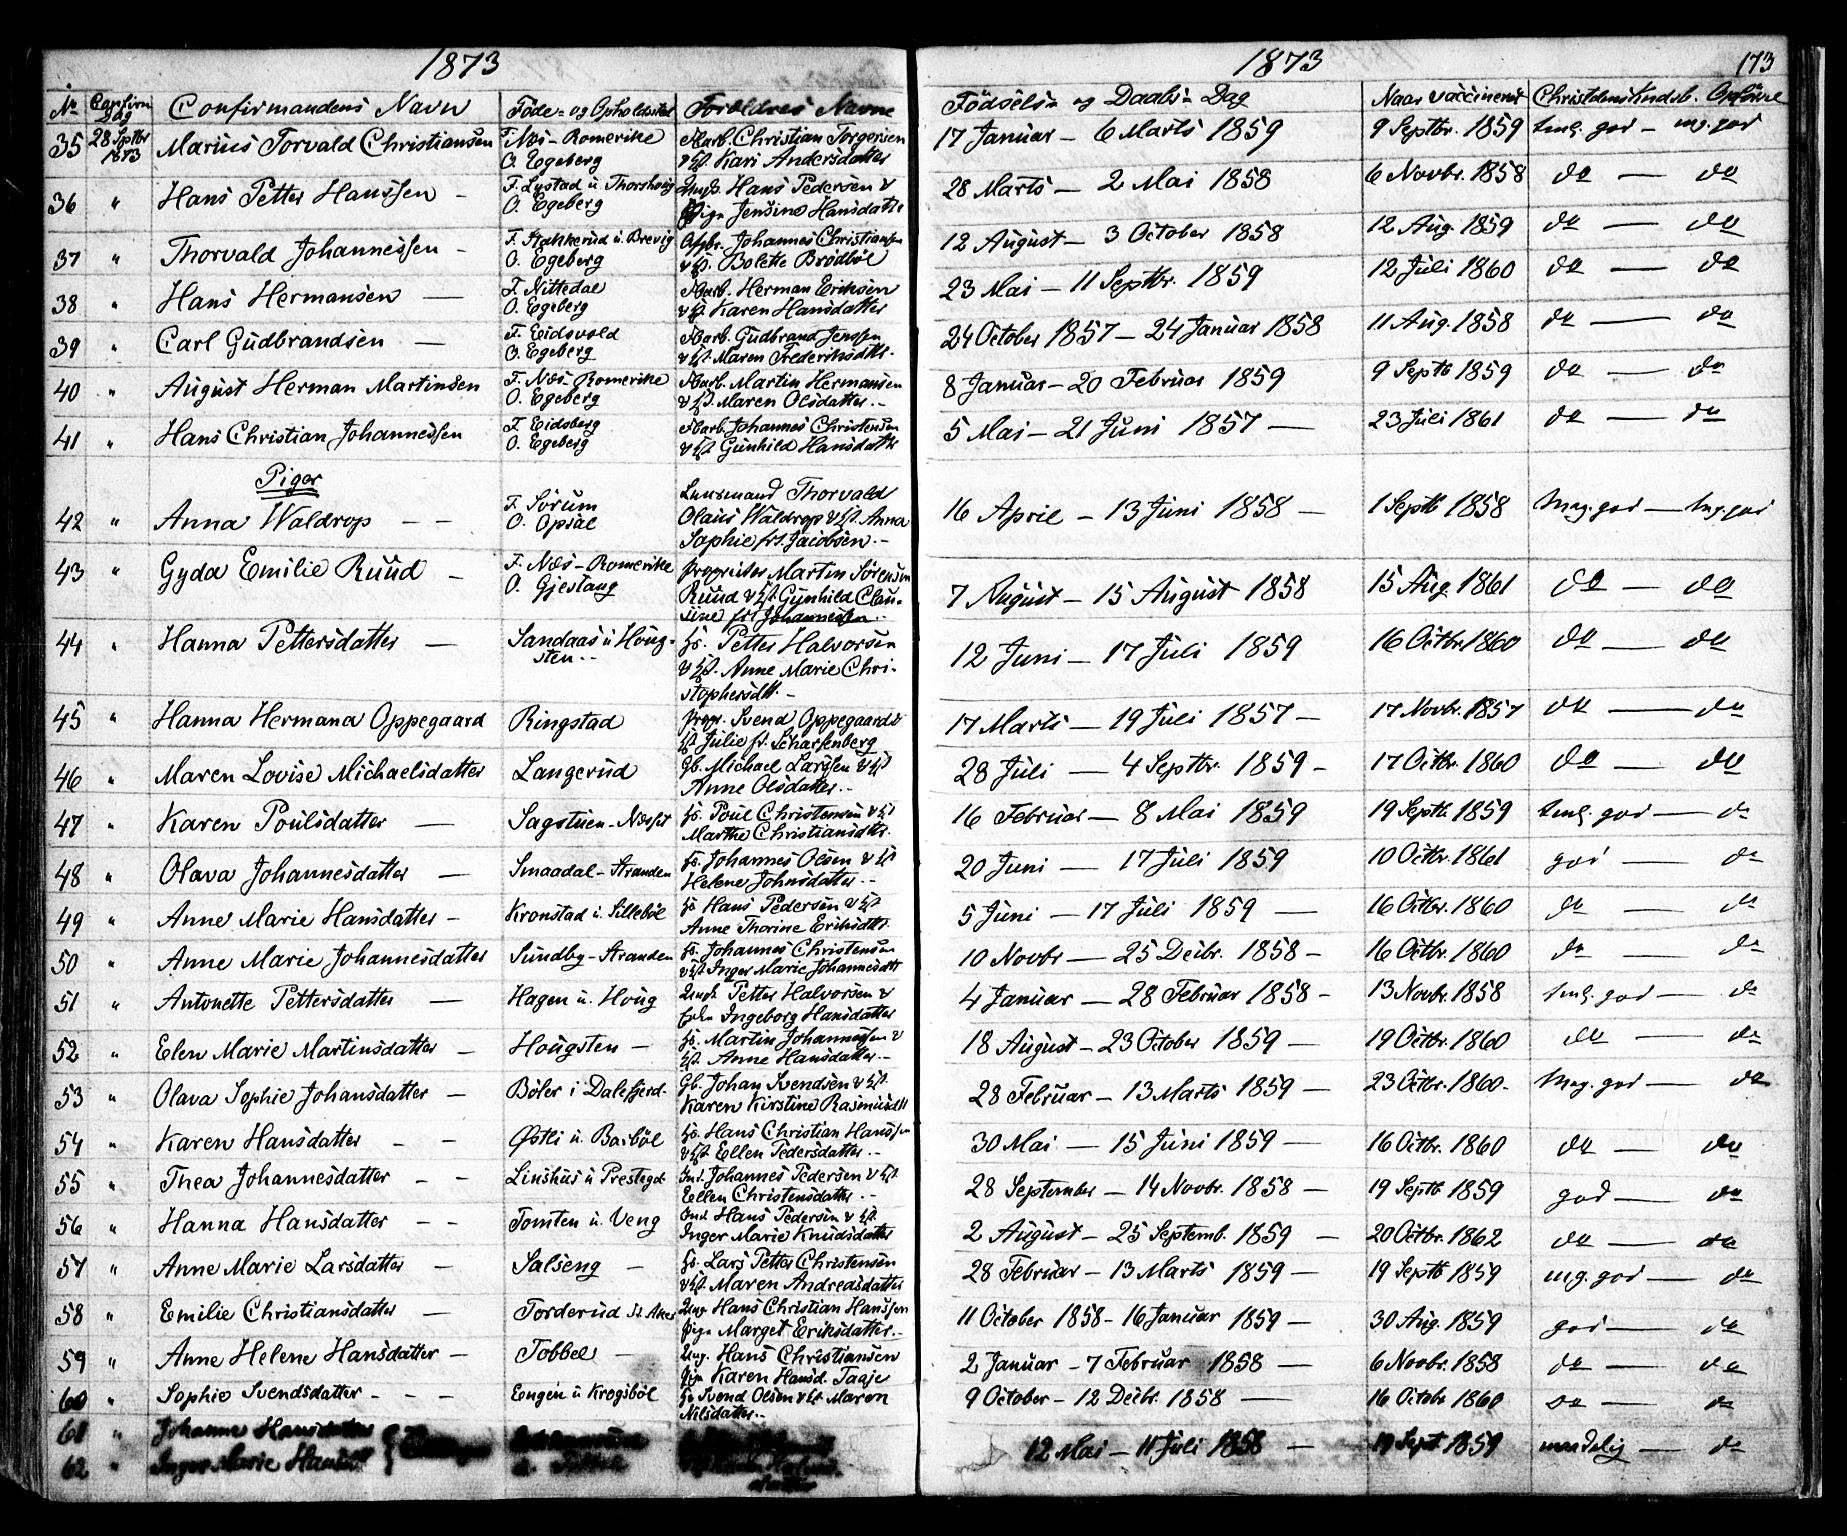 1873
1873
173
No Confirm Dag Confirmandens Navn Føde- og Opholdssted Forældres Navne Fødsels- og Daabs- Dag Naar vaccineret Christdomskundsk. Opførsel
35 28 Septbr 1873 Marius Torvald Christiansen F. Næs-Romerike O. Egeberg Arb. Christian Torgersen & Hst. Kari Andersdatter 17 Januar - 6 Marts 1859 9 Septbr. 1859 tml. god - mg. god
36 " Hans Petter Hanssen - F. Lystad u. Thorshaug O. Egeberg Ungk. Hans Pedersen & Pige Jensine Hansdatter 28 Marts - 2 Mai 1858 6 Novbr. 1858 do - do
37 " Thorvald Johannessen - F. Stakkerud u. Brevig O. Egeberg Johannes Christiansen & Hst. Bolette Brödböl 12 August - 3 October 1858 12 Aug. 1859 do - do
38 " Hans Hermansen - F. Nittedal O. Egeberg Arb. Herman Eriksen & Hst. Karen Hansdatter 23 Mai - 11 Septbr. 1859 12 Juli 1860 do - do
39 " Carl Gudbrandsen - F. Eidsvold O. Egeberg Arb. Gudbrand Jenssen & Hst. Maren Frederiksdttr. 24 October 1857 - 24 Januar 1858 11 Aug. 1858 do - do
40 " August Herman Martinsen F. Næs-Romerike O. Egeberg Arb. Martin Hermansen & Hst. Maren Olsdatter. - 8 Januar - 20 Februar 1859 9 Septb 1859 do - do
41 " Hans Christian Johannessen F. Eidsberg O. Egeberg Arb. Johannes Christensen & Hst Gunhild Hansdatter 5 Mai - 21 Juni 1857 - 23 Juli 1861 do - do
Piger
42 " Anna Waldrop - - F. Sørum O. Opsal Lensmand Thorvald Olaus Waldrop & Hst. Anna Sophie fr. Jacobsen. - 16 April - 13 Juni 1858 - 1 Septb 1858 Mag. god - mg. god
43 " Gyda Emilie Ruud - F. Næs-Romerike O. Gjestang proprietær Martin Sörensen Ruud & Hst. Gunhild Clausine fr. Johannessen. 7 August - 15 August 1858 15 Aug. 1861 do - do
44 " Hanna Pettersdatter - Sandaas u Hougsten. - Hs. Petter Halvorsen & Hst. Anne Marie Christophersdtt. - 12 Juni - 17 Juli 1859 16 Octbr. 1860 do - do
45 " Hanna Hermana Oppegaard Ringstad propr. Svend Oppegaard & Hst Julie f. Scharfenberg 17 Marts - 19 Juli 1857 - 17 Novbr. 1857 do - do
46 " Maren Lovise Michaelsdatter Langerud Gb. Michael Larssen & Hst Anne Olsdatter. - 28 Juli - 4 Septbr. 1859 - 17 Octbr. 1860 do - do
47 " Karen Poulsdatter - Sagstuen-Næsset Hs. Poul Christensen & Hst Marthe Christiansdttr. 16 Februar - 8 Mai 1859 19 Septb. 1859 tml. god - do
48 " Olava Johannesdatter - Smaadal-Stranden Hs. Johannes Olsen & Hst Helene Johnsdatter. - 20 Juni - 17 Juli 1859 10 Octbr. 1861 god - do
49 " Anne Marie Hansdatter - Kronstad u. Sillebøl Hs Hans Pedersen & Hst Anne Thorine Eriksdttr. 5 Juni - 17 Juli 1859 - 16 Octbr. 1860 do - do
50 " Anne Marie Johannesdatter Sundby-Stranden Hs. Johannes Christensen & Hst Inger Marie Johannesdtt 10 Novbr - 25 Decbr. 1858 - 16 Octbr. 1860 do - do
51 " Antonette Pettersdatter - Hagen u. Houg Ungk. Petter Halvorsen & Ingeborg Hansdatter 4 Januar - 28 Februar 1858 - 13 Novbr. 1858 tml. god - do
52 " Elen Marie Martinsdatter - Hougsten - Hs. Martin Johannessen & Hst. Anne Hansdatter. - 18 August - 23 October 1859 - 19 Octbr. 1860 do - do
53 " Olava Sophie Johansdatter - Böler i Dalefjerd. Gb. Johan Svendsen & Hst. Karen Kirstine Rasmusdtt 28 Februar - 13 Marts 1859 - 23 Octbr. 1860. Mag. god - do
54 " Karen Hansdatter - - Østli u. Barböl Hs. Hans Christian Hanssen & Hst Ellen Pedersdatter. - 30 Mai - 15 Juni 1859 - 16 Octbr. 1860 do - do
55 " Thea Johannesdatter - - Linshus u Prestegd. Ind. Johannes Pedersen & Hst. Ellen Christensdatter. - 28 September - 14 Novbr. 1858 - 19 Septb 1859 god - do
56 " Hanna Hansdatter - - Tomten u. Veng Ind. Hans Pedersen & Hst. Inger Marie Knudsdatter 2 August - 25 Septemb. 1859 - 20 Octbr. 1862 do - do
57 " Anne Marie Larsdatter - Salseng - Hs. Lars Petter Christensen & Hst. Maren Andreasdatter 28 Februar - 13 Marts 1859 - 19 Septb 1859 mg. god - do
58 " Emilie Christiansdatter - Torderud Ungk. Hans Christian Hanssen Pige Marget Eriksdatter. - 11 October 1858 - 16 Januar 1859 - 30 Aug. 1859 god - do
59 " Anne Helene Hansdatter - Tobbel - Ung. Hans Christiansen Pige Karen Hansd. Taaje 2 Januar - 7 Februar 1858 - 6 Novbr. 1858 do - do
60 " Sophie Svendsdatter - - - Engen u Krogsböl Hs Svend Olsen & Hst. Maren Nilsdatter. - 9 October - 12 Decbr. 1858 - 16 Octobr 1860 do - do
61 " Johanne Hansdatter
62 " Inger Marie Hansdtt 12 Mai - 11 Juli 1858 - 19 Sept. 1859 maadelig - do